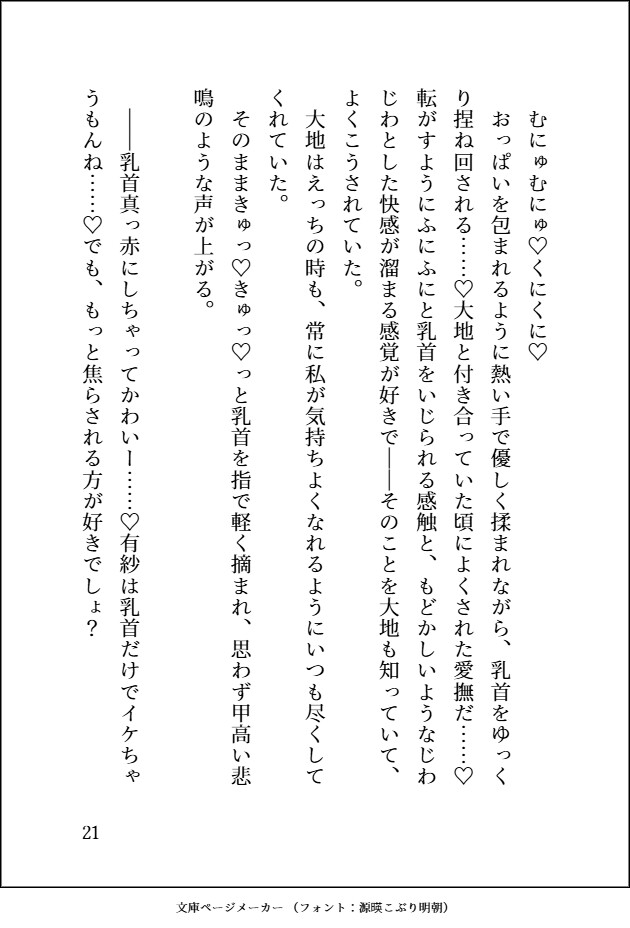 むにゅむにゅ♡くにくに♡
おっぱいを包まれるように熱い手で優しく揉まれながら、乳首をゆっく
り捏ね回される……♡大地と付き合っていた頃によくされた愛撫だ……♡
転がすようにふにふにと乳首をいじられる感触と、もどかしいようなじわ
じわとした快感が溜まる感覚が好きで――そのことを大地も知っていて、
よくこうされていた。
大地はえっちの時も、常に私が気持ちよくなれるようにいつも尽くして
くれていた。
そのままきゅっ♡きゅっ♡っと乳首を指で軽く摘まれ、思わず甲高い悲
鳴のような声が上がる。
――乳首真っ赤にしちゃってかわいー……♡有紗は乳首だけでイケちゃ
うもんね……♡でも、もっと焦らされる方が好きでしょ？
21
文庫ページメーカー（フォント：源暎こぶり明朝）